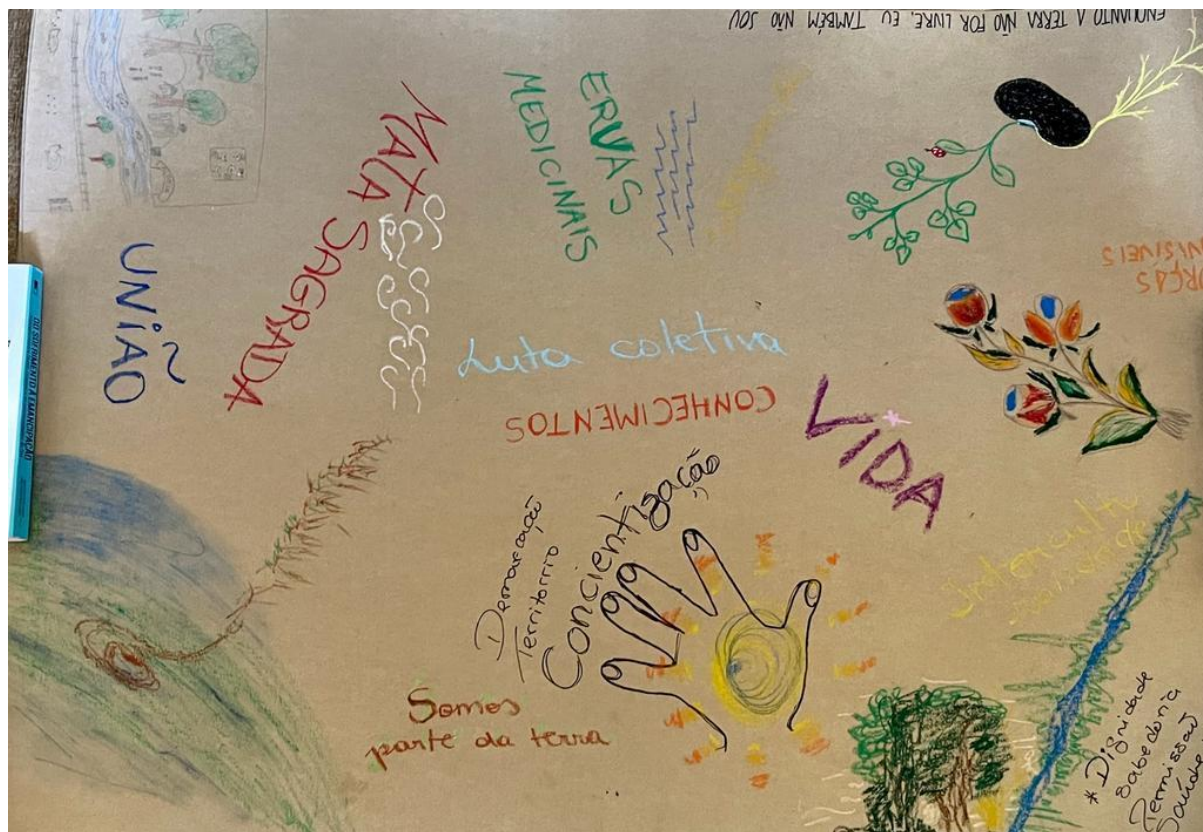 ENQUANTO A TERRA NÃO FOR LIVRE, EU TAMBÉM NÃO SOU
ERVAS
MEDICINAIS
MATA SAGRADA
UNIÃO
DO SOFRIMENTO À EMANCIPAÇÃO
Luta coletiva
CONHECIMENTOS
VIDA
Demarcação
Territorrio
Concientização
Somos
parte da terra
* Dignidade
Sabedoria
Permissão
Saúde